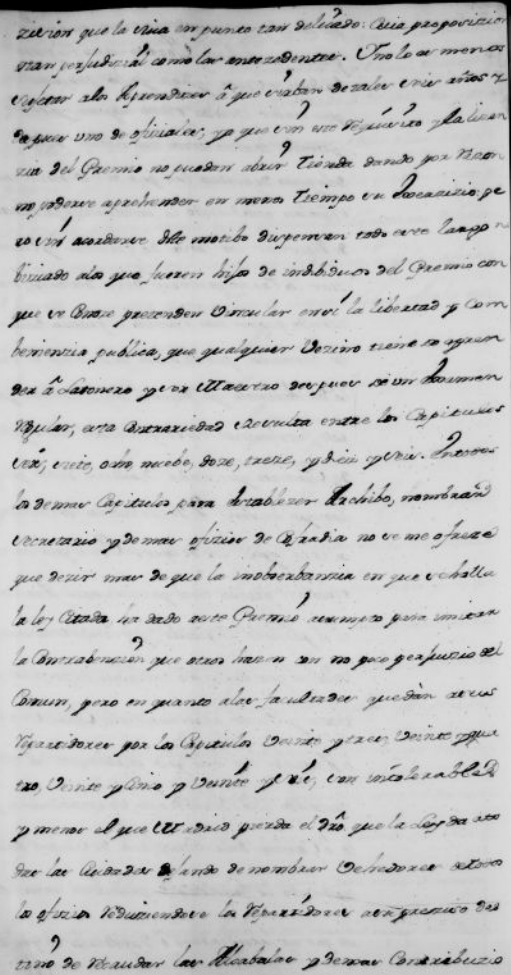 zision que la suia en punto tan delicado: Cuia proposizion
estan perjudizial como las antezedentes. Uno lo es menos
sujetar alos Aprendizes â que sirban de tales seis años y
despues uno de ofiziales, ya que sin este Requisito y la lizen
zia del Gremio no puedan abrir Tienda dando por Razon
no poderse aprehender en menos Tiempo su Exerzizio; pe
ro sin acordarse dste motibo dispensan todo este largo
alos que fueren hijos de indibiduos del Gremio con
que se Conoze pretenden Vincular en sí la libertad y Com
benienzia publica, que qualquier Vezino tiene de apren
der â Latonero y ser Maestro despues de un Examen
Regular, esta Contrariedad Resulta entre los Capitulos
seis, siete, ocho, nuebe, doze, treze, y diez y seis. En todos
los demas Capitulos para establezer Archibo, nombrar
secretario y demas ofizios de Cofradia no se me ofreze
que dezir mas de que la inobserbanzia en que se halla
la ley Citada ha dado aeste Gremio asumpto para imitar
la Contrabenzion que otros hazen con no poco perjuizio del
Comun, pero en quanto alas facultades que dàn asus
Repartidores por los Capitulos Veinte y tres, Veinte y qua
tro, Veinte y Zinco y Veinte y seis, son intolerables
y menos el que Madrid pierda el dro. que la Ley da ato
das las Ciudades de nombrar Vehedores de todos
los ofizios Reduziendose los Repartidores a un prezisso des
tino de Recaudar las Alcabalas y demas Contribuzio